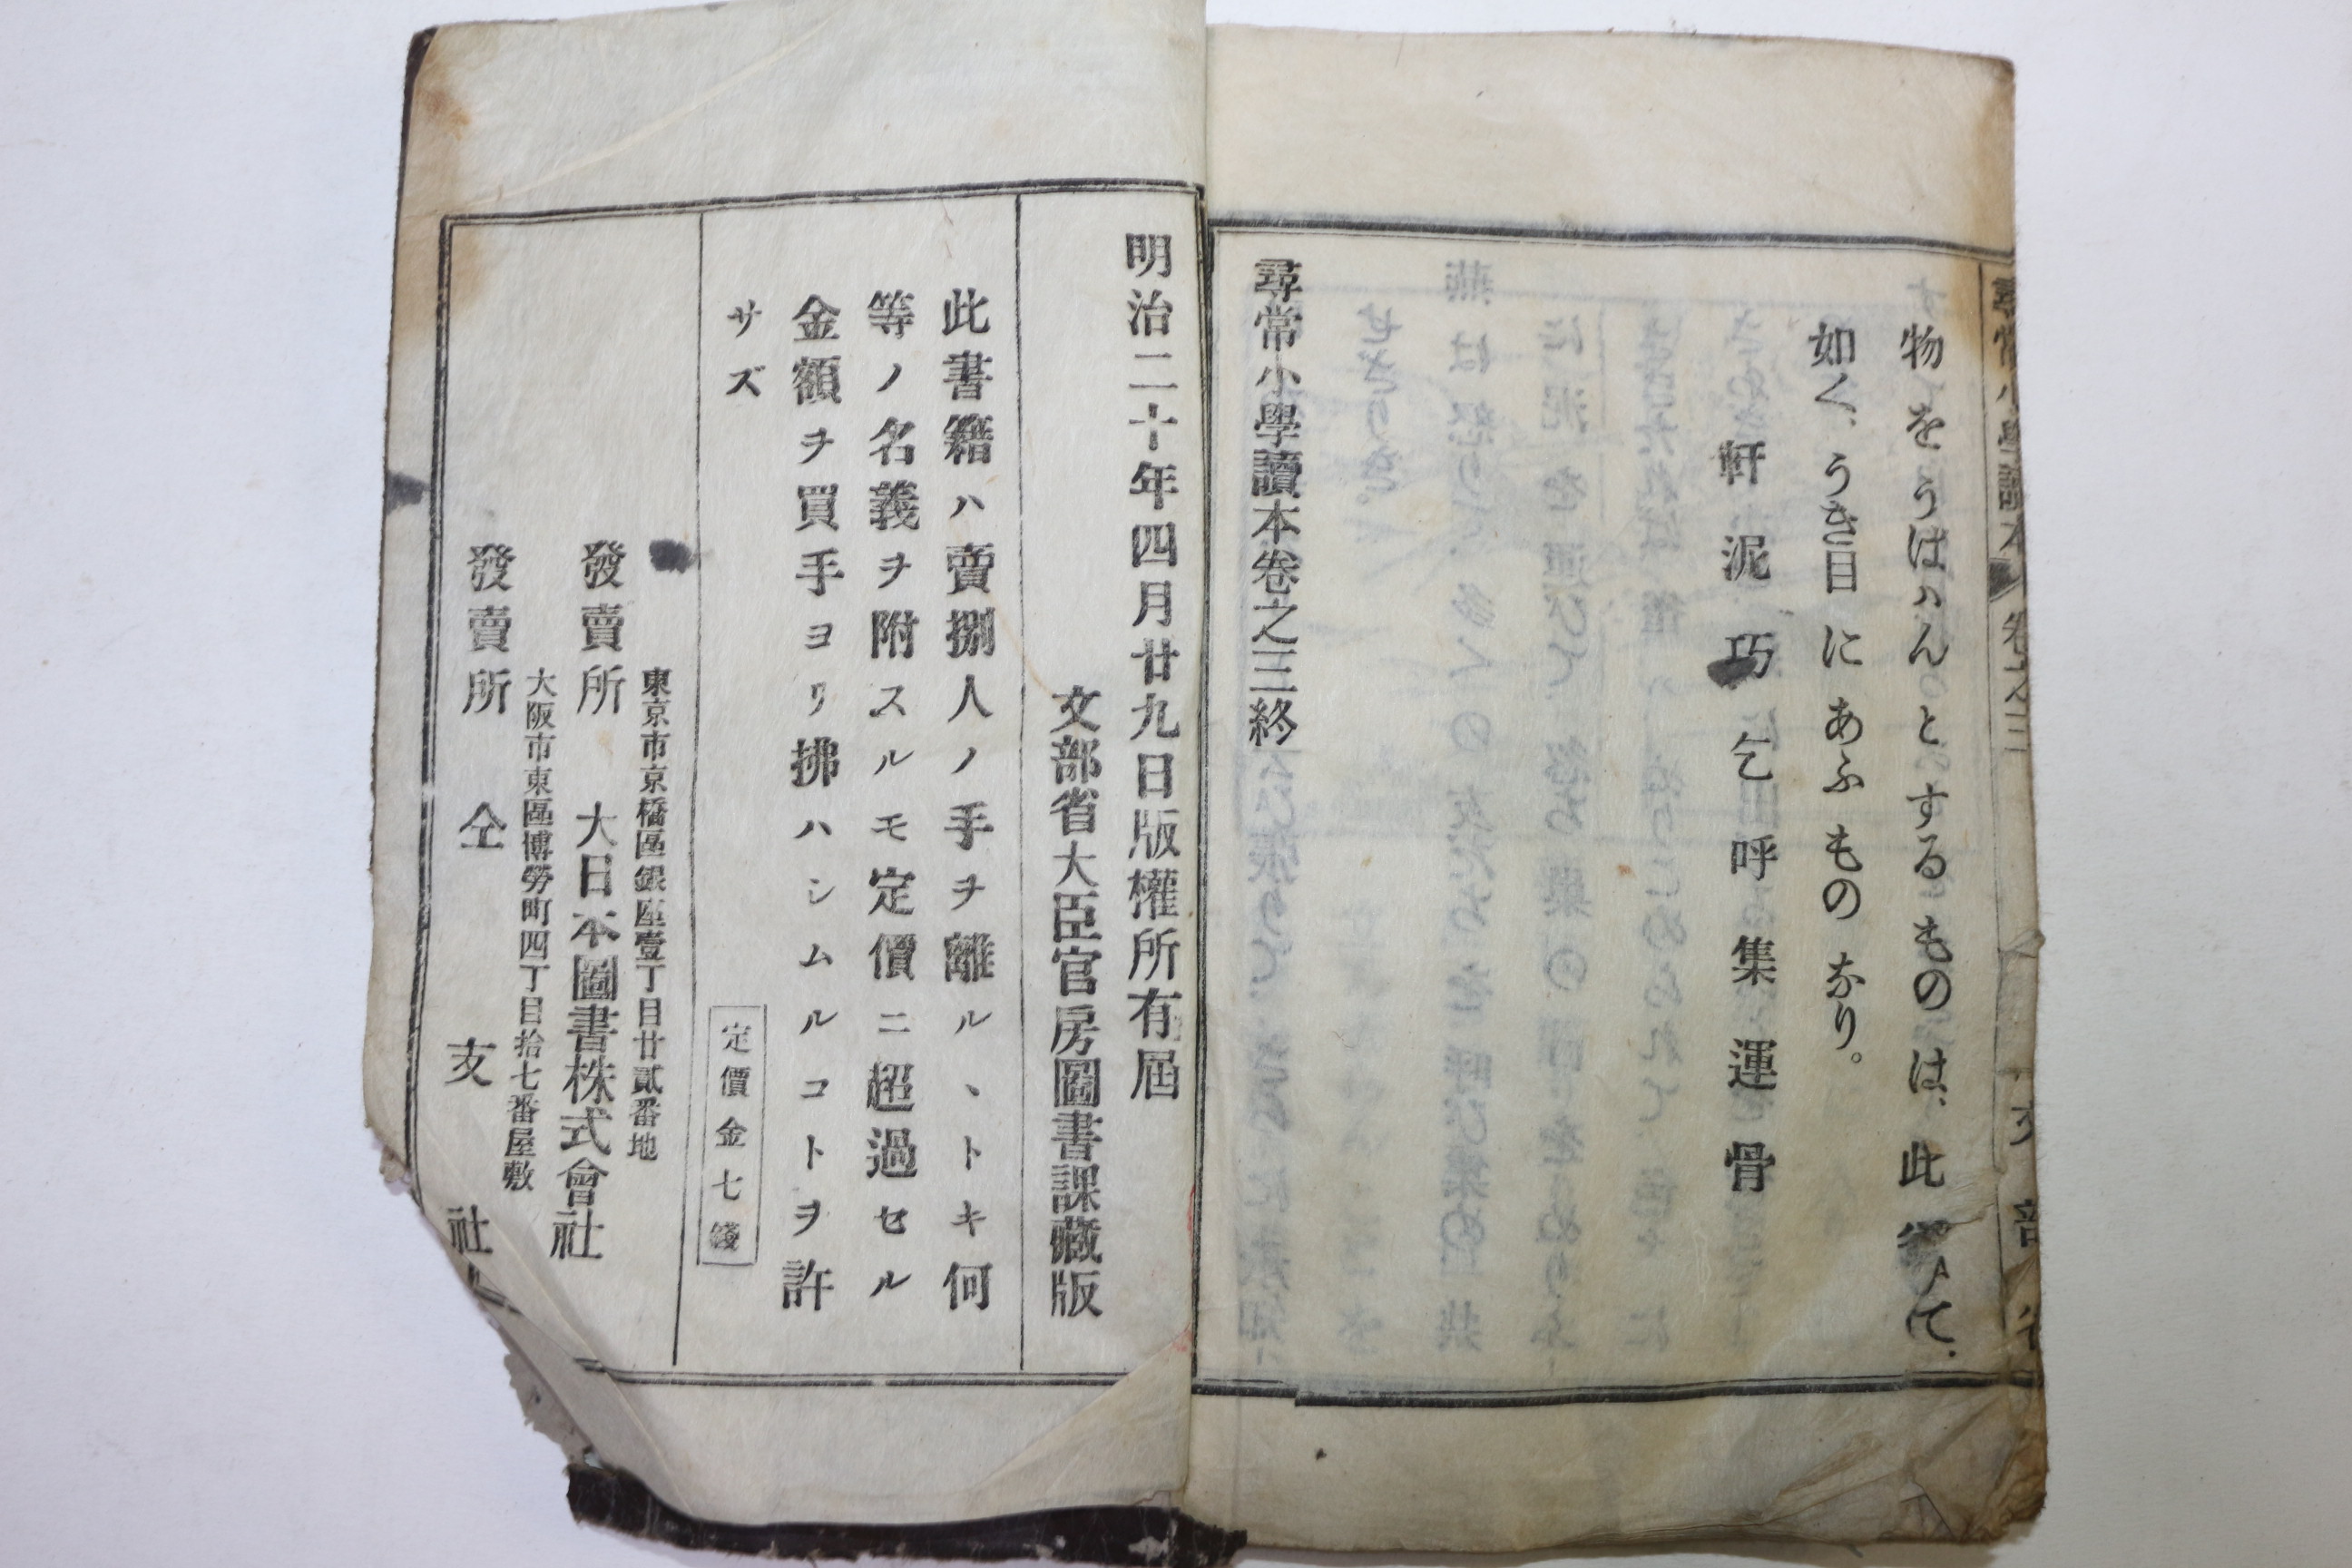 尋常小學讀本 卷之三 文部省
物をうばはんとするものは、此雀の
如く、うき目にあふものなり。
軒泥巧乞呼集運骨
尋常小學讀本卷之三終
明治二十年四月廿九日版權所有屆
文部省大臣官房圖書課藏版
此書籍ハ賣捌人ノ手ヲ離ルヽトキ何
等ノ名義ヲ附スルモ定價ニ超過セル
金額ヲ買手ヨリ拂ハシムルコトヲ許
サズ
定價金七錢
東京市京橋區銀座壹丁目廿貳番地
發賣所 大日本圖書株式會社
大阪市東區博勞町四丁目拾七番屋敷
發賣所 仝支社